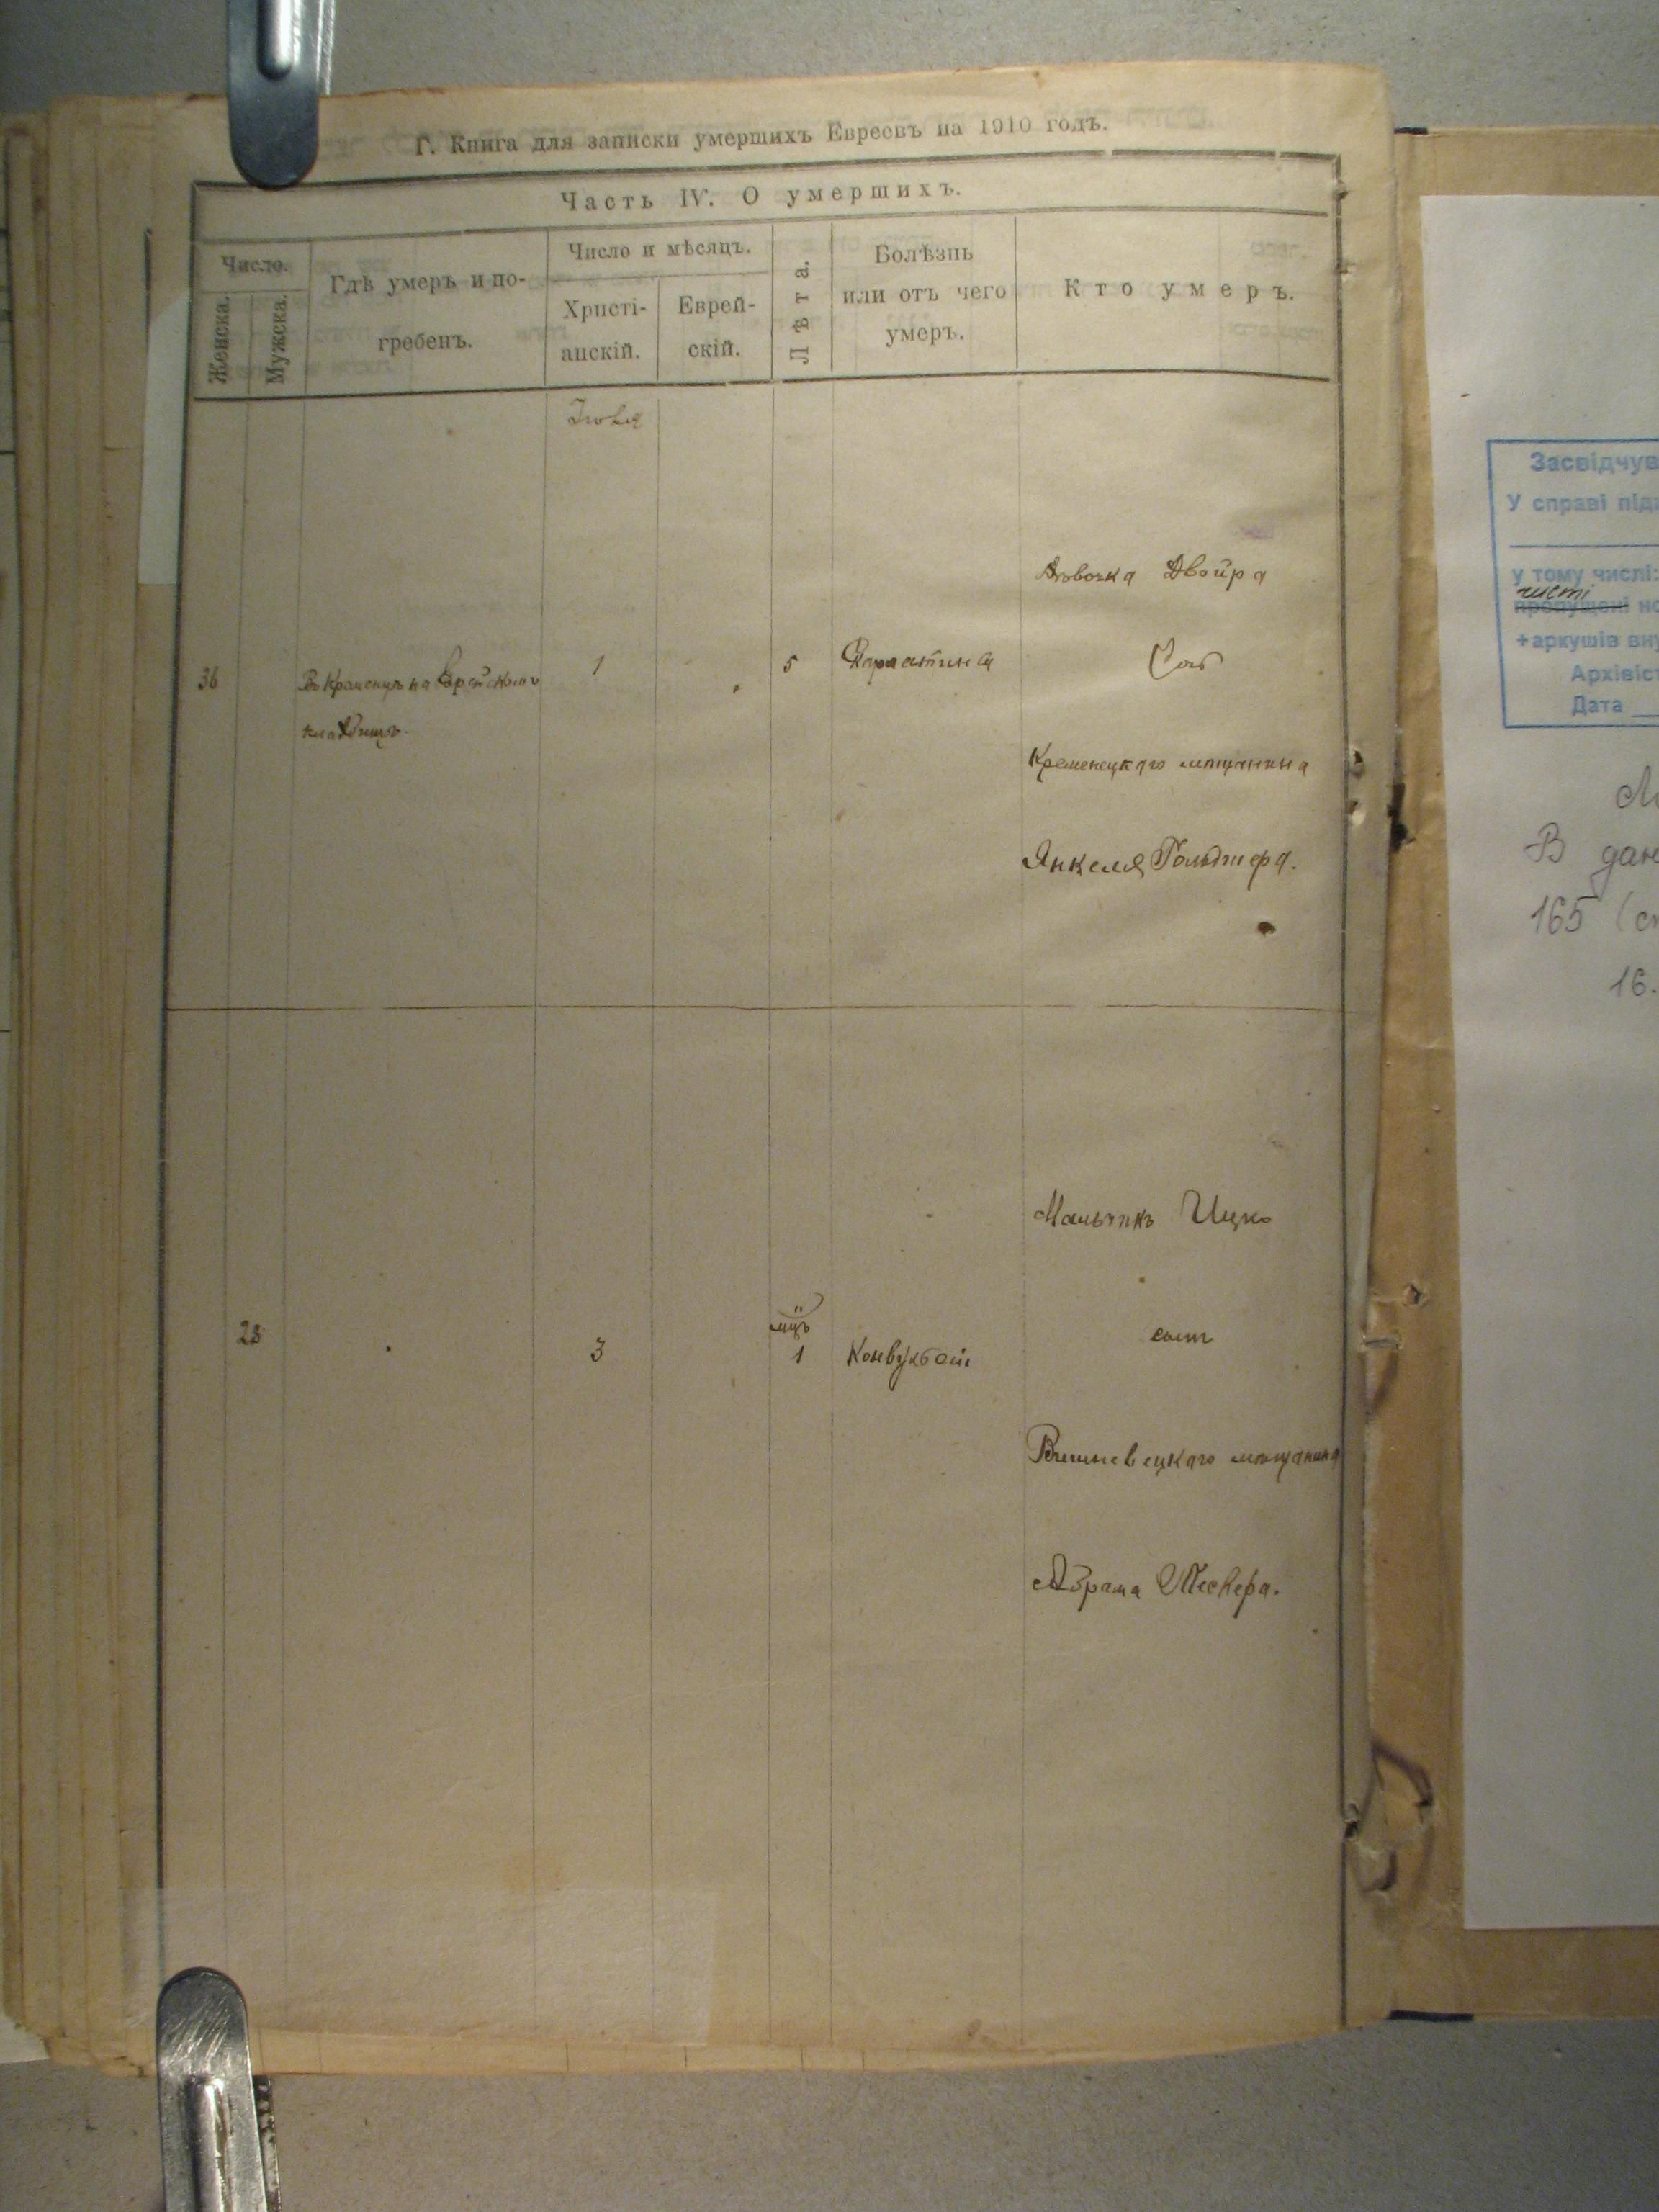 Г. Книга для записки умершихъ Евреевъ на 1910 годъ.
Часть IV. О умершихъ.
Число.
Женска.
Мужска.
Гдѣ умеръ и по-
гребенъ.
Число и мѣсяцъ.
Христі-
анскій.
Еврей-
скій.
Лѣта.
Болѣзнь
или отъ чего
умеръ.
Кто умеръ.
Іюля
36
на Еврейскомъ
кладбищѣ.
1
5
Скарлатина
Дѣвочка Двойра
Кременецкаго мѣщанина
Янкеля
28
3
мцъ
1
Мальчикъ Ицко
сынъ
Вишневецкаго мѣщанина
Абрама
Засвідчув
У справі підш
у тому числі:
чисті
пропущені но
+аркушів вну
Архівіст
Дата
В дан
165
16.